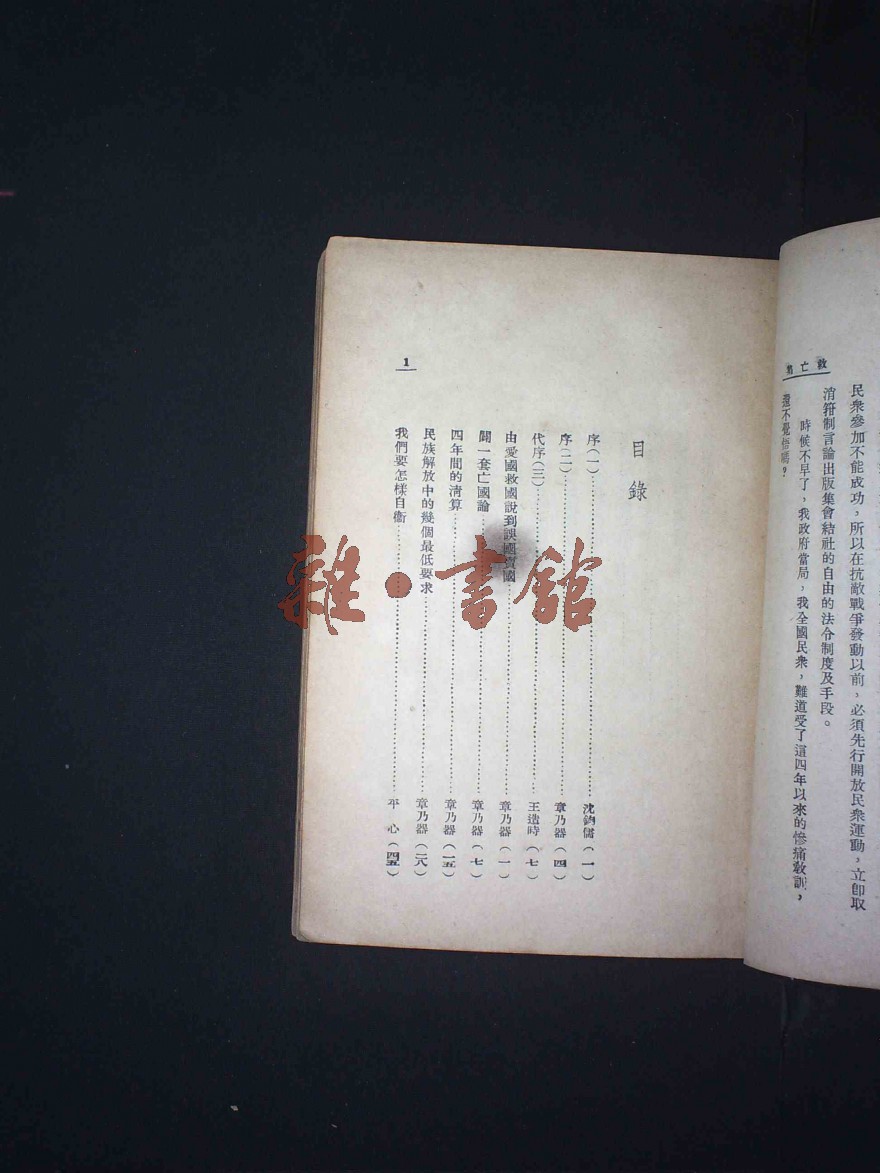 救亡
民衆參加不能成功，所以在抗敵戰爭發動以前，必須先行開放民衆運動，立卽取
消箝制言論出版集會結社的自由的法令制度及手段。
時候不早了，我政府當局，我全國民衆，難道受了這四年以來的慘痛敎訓，
還不覺悟嗎？
目錄
序（一）⋯⋯沈鈞儒（一）
序（二）⋯⋯章乃器（四）
代序（三）⋯⋯王造時（七）
由愛國救國說到誤國賣國⋯⋯章乃器（一）
闢一套亡國論⋯⋯章乃器（七）
四年間的淸算⋯⋯章乃器（一五）
民族解放中的幾個最低要求⋯⋯章乃器（二八）
我們要怎樣自衞⋯⋯平心（四五）
1
雜·書館